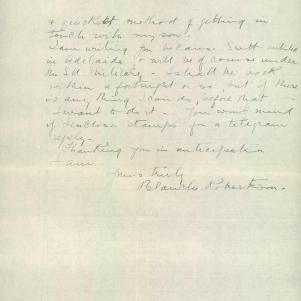 & quickest method of getting in
touch with my son.
I am writing you because Scott enlisted
in Adelaide & will be of course under
the S.A. Military - I shall be back
within a fortnight or so, but if there
is any thing I can do, before that
I want to do it. You wont mind
if I enclose stamps for a telegram
reply.
Thanking you in anticipation
I am
Yours truly
Blanche Robertson.